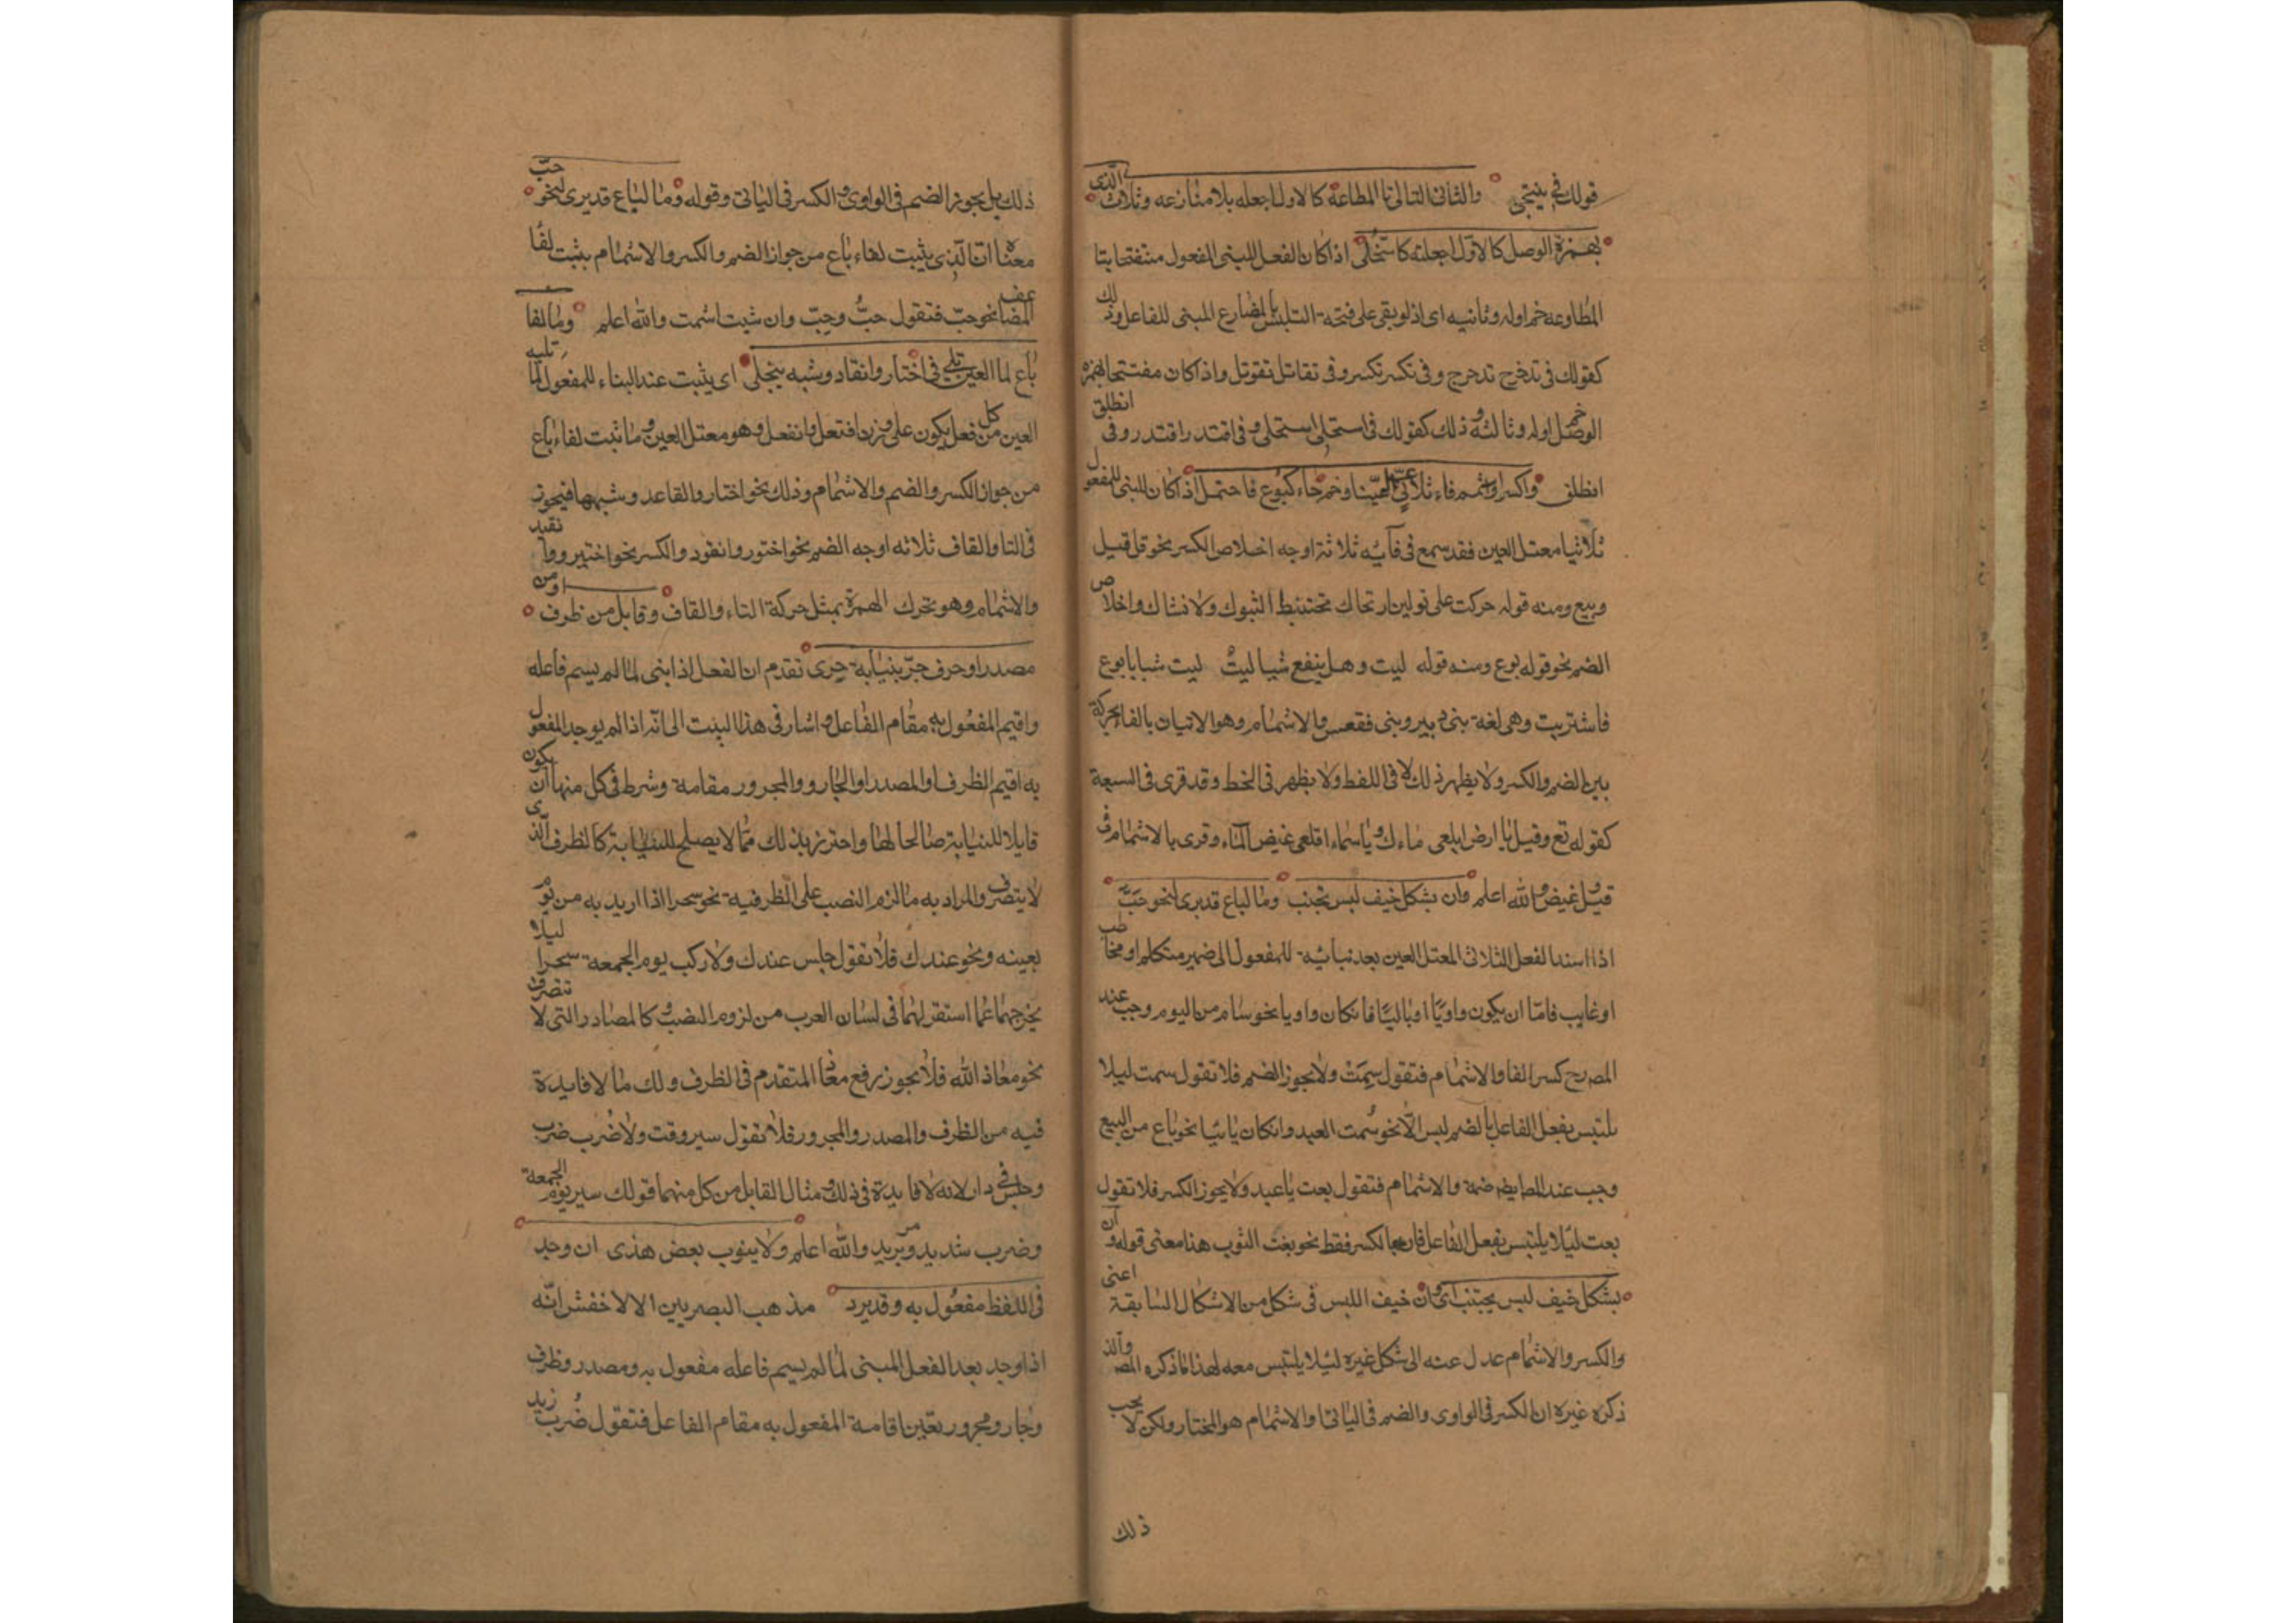 قولك فى ينتجى والثانى التالى تا المطاعة كالاول اجعله بلا منازعه وثلاث الذى
بهمزة الوصل كالاول اجعلنه كاستحلى اذا كان الفعل المبنى للمفعول مفتتحا بتا
المطاوعه ضم اوله وثانيه اى اذ لو بقى على فتحه التلبس بالمضارع المبنى للفاعل وذلك
كقولك فى تدخرج تدحرج وفى تكسر تكسر وفى تقاتل تقوتل واذا كان مفتتحا بهمزه
الوصل ضم اوله وثالثه وذلك كقولك فى استحلى استحلى وفى اقتدر اقتدر وفى انطلق
انطلق واكسر او اشمم فاء ثلاثى اعل عينا وضم جاء كبوع فاحتمل اذا كان المبنى للمفعول
ثلاثيا معتل العين فقد سمع فى فائه ثلاثة اوجه اخلاص الكسر نحو قل قيل
وبيع ومنه قوله حركت على نولين اذ تحاك تختبط الشوك ولا تشاك واخلاص
الضم نحو قوله بوع ومنه قوله ليت وهل ينفع شيا ليت ليت شبابا بوع
فاشتريت وهى لغة بنى دبير وبنى فقعس والاشمام وهو الاتيان بالفا بحركة
بين الضم والكسر ولا يظهر ذلك الا فى اللفظ ولا يظهر فى الخط وقد قرى فى السبعة
كقوله تع وقيل يا ارض ابلعى ماءك ويا سماء اقلعى وغيض الماء وقرى بالاشمام فى
قيل وغيض والله اعلم وان بشكل خيف لبس يجتنب وما لباع قد يرى لنحو حب
اذا اسند الفعل الثلاثى المعتل العين بعد بنائه للمفعول الى ضمير متكلم او مخاطب
او غايب فاما ان يكون واويا او يائيا فان كان واويا نحو سام من اليوم وجب عند
المص رح كسر الفا والاشمام فتقول سمت ولا يجوز الضم فلا تقول سمت ليلا
يلتبس بفعل الفاعل بالضم ليس الا نحو سمت العبد وان كان يائيا نحو باع من البيع
وجب عند المص ايضا ضمه والاشمام فتقول بعت يا عبد ولا يجوز الكسر فلا تقول
بعت ليلا يلتبس بفعل الفاعل فانه بالكسر فقط نحو بعت الثوب هذا معنى قوله وان
بشكل خيف لبس يجتنب اى وان خيف اللبس فى شكل من الاشكال السابقة اعنى
والكسر والاشمام عدل عنه الى شكل غيره ليلا يلتبس معه لهذا ما ذكره المص والذ
ذكره غيره ان الكسر فى الواوى والضم فى اليائى والاشمام هو المختار ولكن لا يجب
ذلك
ذلك بل يجوز الضم فى الواوى والكسر فى اليائى وقوله وما لباع قد يرى لنحو حب
معناه ان الذى يثبت لفاء باع من جواز الضم والكسر والاشمام يثبت لفا
المضاعف نحو حب فتقول حب وحب وان شيت اشمت والله اعلم وما لفا
باع لما العين تلى فى اختار وانقاد وشبه ينجلى اى يثبت عند البناء للمفعول لما تليه
العين من كل فعل يكون على وزن افتعل وانفعل وهو معتل العين وما ثبت لفاء باع
من جواز الكسر والضم والاشمام وذلك نحو اختار وانقاد وشبهها فيجوز
فى التا والقاف ثلاثه اوجه الضم نحو اختور وانقود والكسر نحو اختير وانقيد
والاشمام وهو تحرك الهمزة بمثل حركة التاء والقاف وقابل من ظرف او من
مصدر او حرف جر بنيابة حرى تقدم ان الفعل اذا بنى لما لم يسم فاعله
واقيم المفعول به مقام الفاعل واشار فى هذا البيت الى انه اذا لم يوجد المفعول
به اقيم الظرف او المصدر او الجار والمجرور مقامه وشرط فى كل منها ان يكون
قابلا للنيابة صالحا لها واحترز بذلك مما لا يصلح للنيابة كالظرف الذى
لا يتصرف والمراد به ما لزم النصب على الظرفية نحو سحر اذا اريد به من يوم
بعينه ونحو عندك فلا تقول جلس عندك ولا ركب يوم الجمعة سحرا ليلا
يخرجهما عما استقر لهما فى لسان العرب من لزوم النصب وكالمصادر التى لا تتصرف
نحو معاذ الله فلا يجوز رفع معاذ لما المتقدم فى الظرف ولك ما لا فايدة
فيه من الظرف والمصدر والمجرور فلا تقول سير وقت ولا ضرب ضرب
وجلس فى دار لانه لا فايدة فى ذلك ومثال القابل من كل منهما قولك سير يوم الجمعة
وضرب شديد ومر بزيد والله اعلم ولا ينوب بعض هذى ان وجد
فى اللفظ مفعول به وقد يرد مذهب البصريين الا الاخفش انه
اذا وجد بعد الفعل المبنى لما لم يسم فاعله مفعول به ومصدر وظرف
وجار ومجرور تعين اقامة المفعول به مقام الفاعل فتقول ضرب زيد